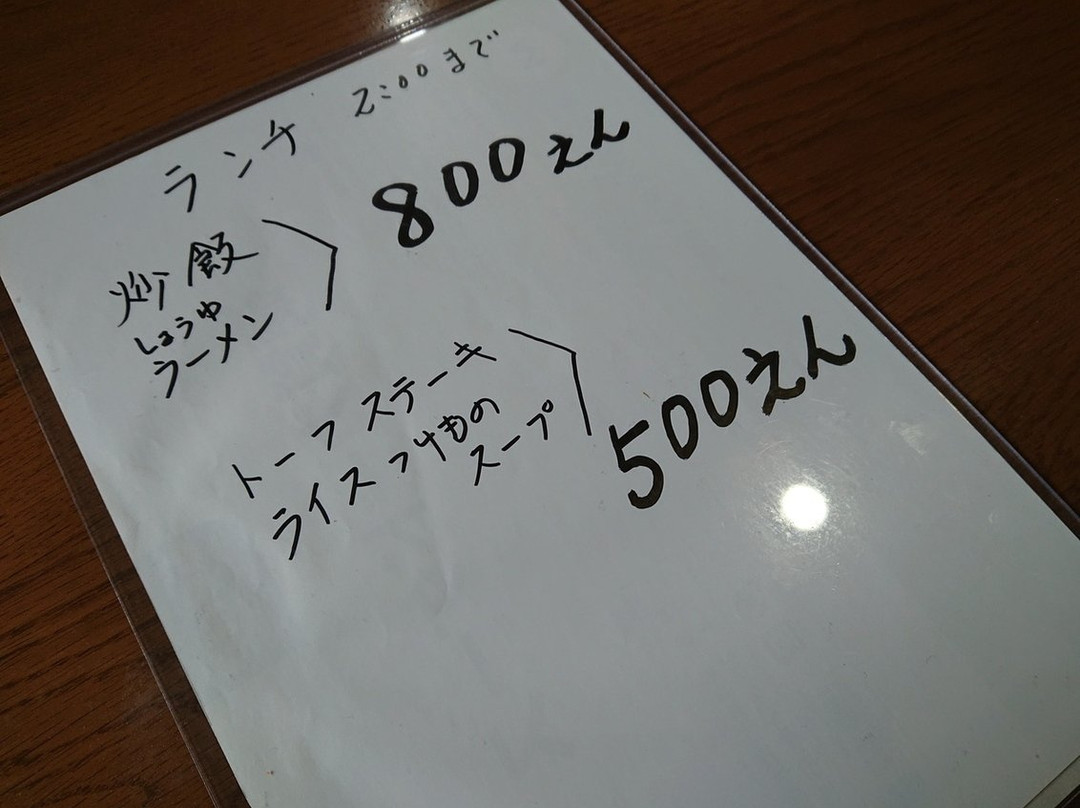 ランチ 2:00まで
炒飯
しょうゆ
ラーメン
800えん
トーフステーキ
ライスつけもの
スープ
500えん